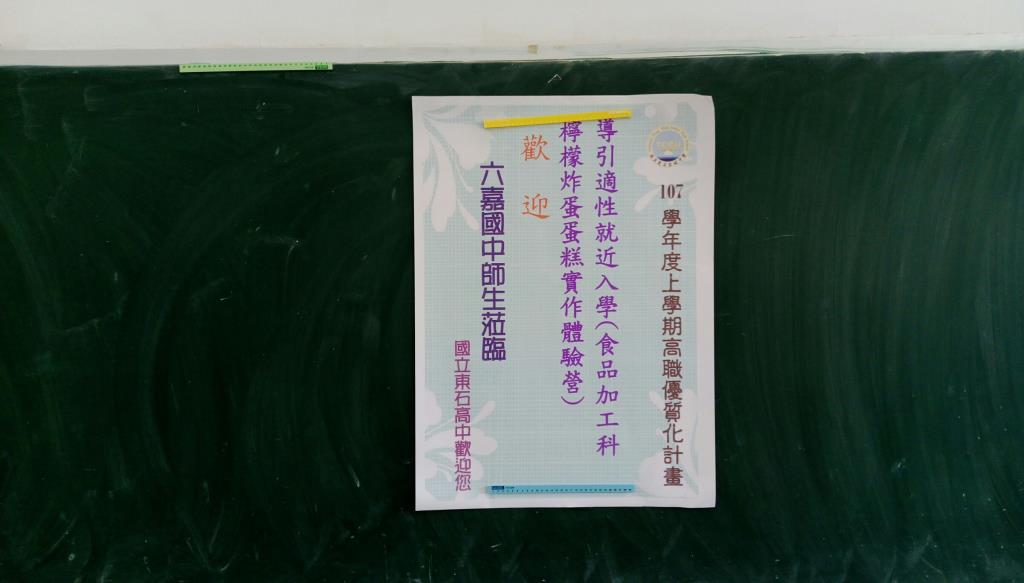 107 學年度上學期高職優質化計畫
導引適性就近入學(食品加工科
檸檬炸蛋蛋糕實作體驗營)
歡迎
六嘉國中師生蒞臨
國立東石高中歡迎您